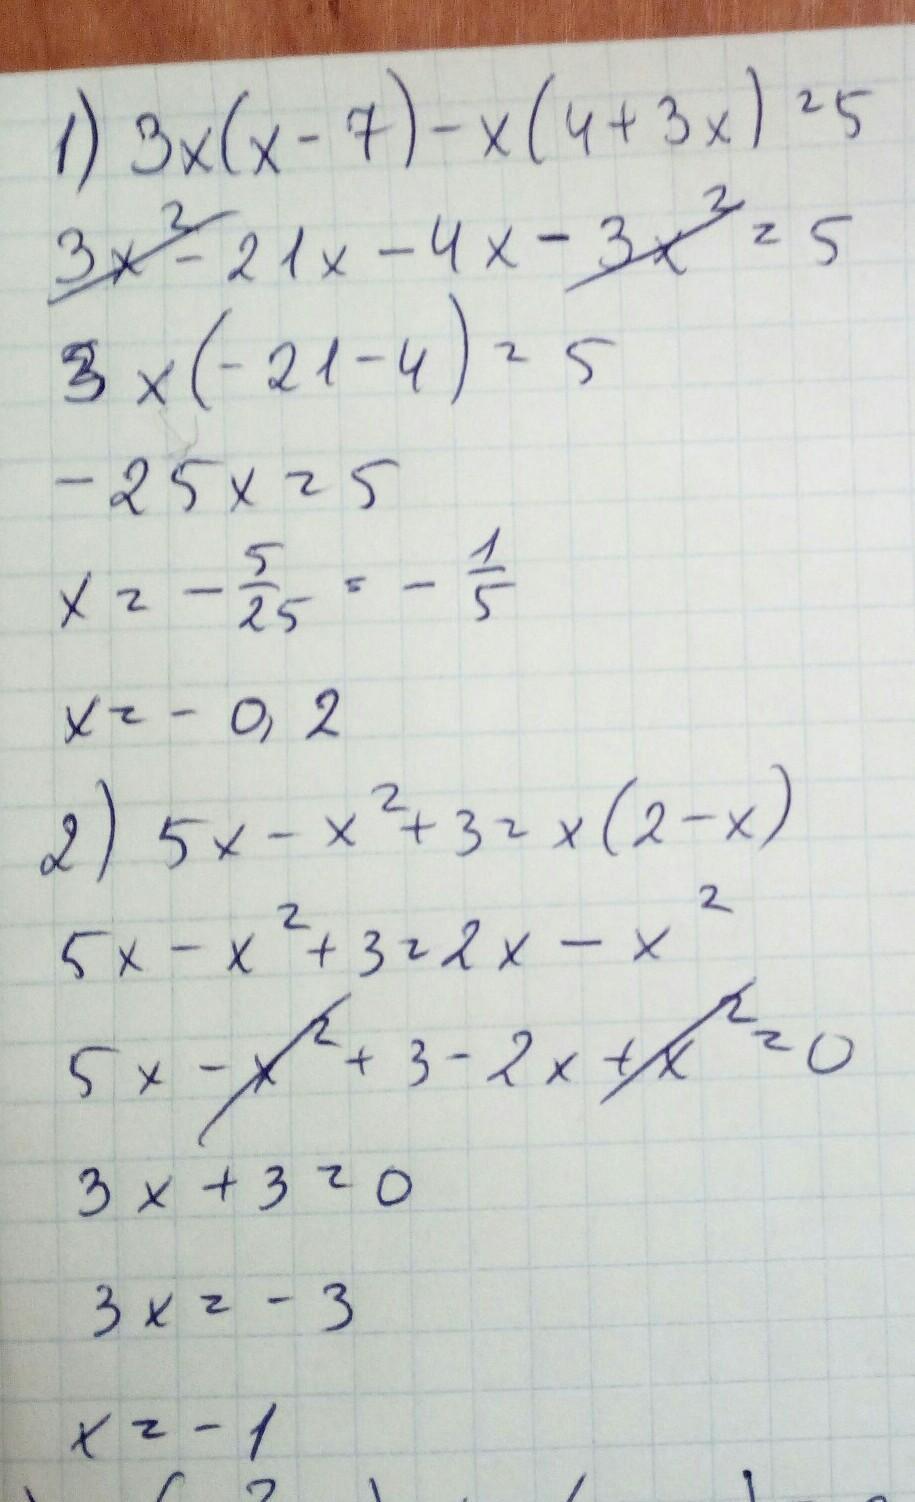 1) 3x(x - 7) - x(4 + 3x) = 5
3x² - 21x - 4x - 3x² = 5
x(-21 - 4) = 5
- 25x = 5
x = - 5/25 = - 1/5
x = - 0,2
2) 5x - x² + 3 = x(2 - x)
5x - x² + 3 = 2x - x²
5x - x² + 3 - 2x + x² = 0
3x + 3 = 0
3x = - 3
x = - 1